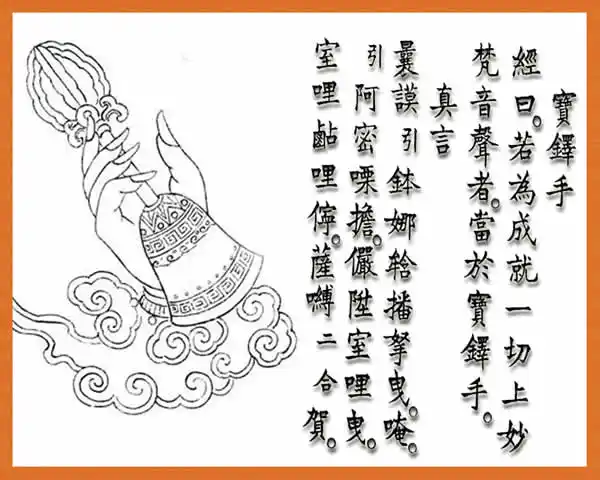 寶鐸手
經曰。若為成就一切上妙
梵音聲者。當於寶鐸手。
真言
曩謨引鉢娜播拏曳。唵。
引阿密㗚擔。儼陞室哩曳。
室哩𪉜哩儜。薩嚩二合賀。